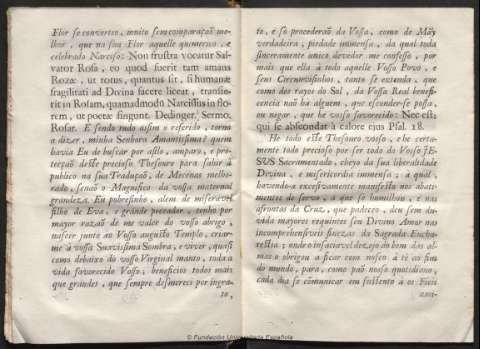 Flor se converteo, muito sem comparaçaõ me-
lhor, que na sua Flor aquelle quimerico, e
celebrado Narciso: Non frustra vocatur Sal-
vator Rosa, eo quod fecerit tam amans
Rozæ, ut totus, quantus sit, si humanæ
fragilitati ad Divina facere liceat, transie-
rit in Rosam, quamadmodũ Narcissus in flo-
rem, ut poetæ fingunt. Dedinger. Sermo.
Rosar. E sendo tudo assim o referido, torno
a dizer, minha Senhora Amantissima! quem
havia Eu de buscar por asilo, amparo, e pro-
tecçaõ deste precioso Thesouro para sahir a
publico na sua Traduçaõ, de Mecenas melho-
rado, senaõ o Magnifico da vossa maternal
grandeza. Eu pobresinho, alem de miseravel
filho de Eva, e grande peccador, tenho por
mayor razaõ de me valer do vosso abrigo,
nascer junto ao Vosso augusto Templo, crear-
me á vossa Suavissima Sombra, e viver, quasi
como debaixo do vosso Virginal manto, toda a
vida favorecido Vosso, beneficios todos mais
que grandes, que sempre desmereci por ingra-
to,
to, e só procederaõ da Vossa, como de Mãy
verdadeira, piedade immensa, da qual toda
sinceramente unico devedor me confesso, por
mais que ella á todo aquelle Vosso Povo, e
seus Circumvisinhos, tanto se estenda, que
como dos rayos do Sol, da Vossa Real benefi-
cencia naõ ha alguem, que esconder-se possa,
ou negar, que he vosso favorecido: Nec est,
qui se abscondat à calore ejus Psal. 18.
He todo este Thesouro vosso, e he certa-
mente todo precioso por ser todo do Vosso JE-
SUS Sacramentado, cheyo da sua liberalidade
Divina, e misericordia immensa; a qual,
havendo-a excessivamente manifesto nos abati-
mentos de servo, a que se humilhou, e nas
afrontas da Cruz, que padeceo, deu sem du-
vida mayores requintes seu Divino Amor nas
incomprehensiveis finezas da Sagrada Eucha-
restia; onde o insaciavel dezejo do bem das al-
mas o obrigou a ficar com nosco à té ao fim
do mundo, para, como paõ nosso quotidiano,
cada dia se comunicar em sustento á os Fieis
© Fundación Universitaria Española